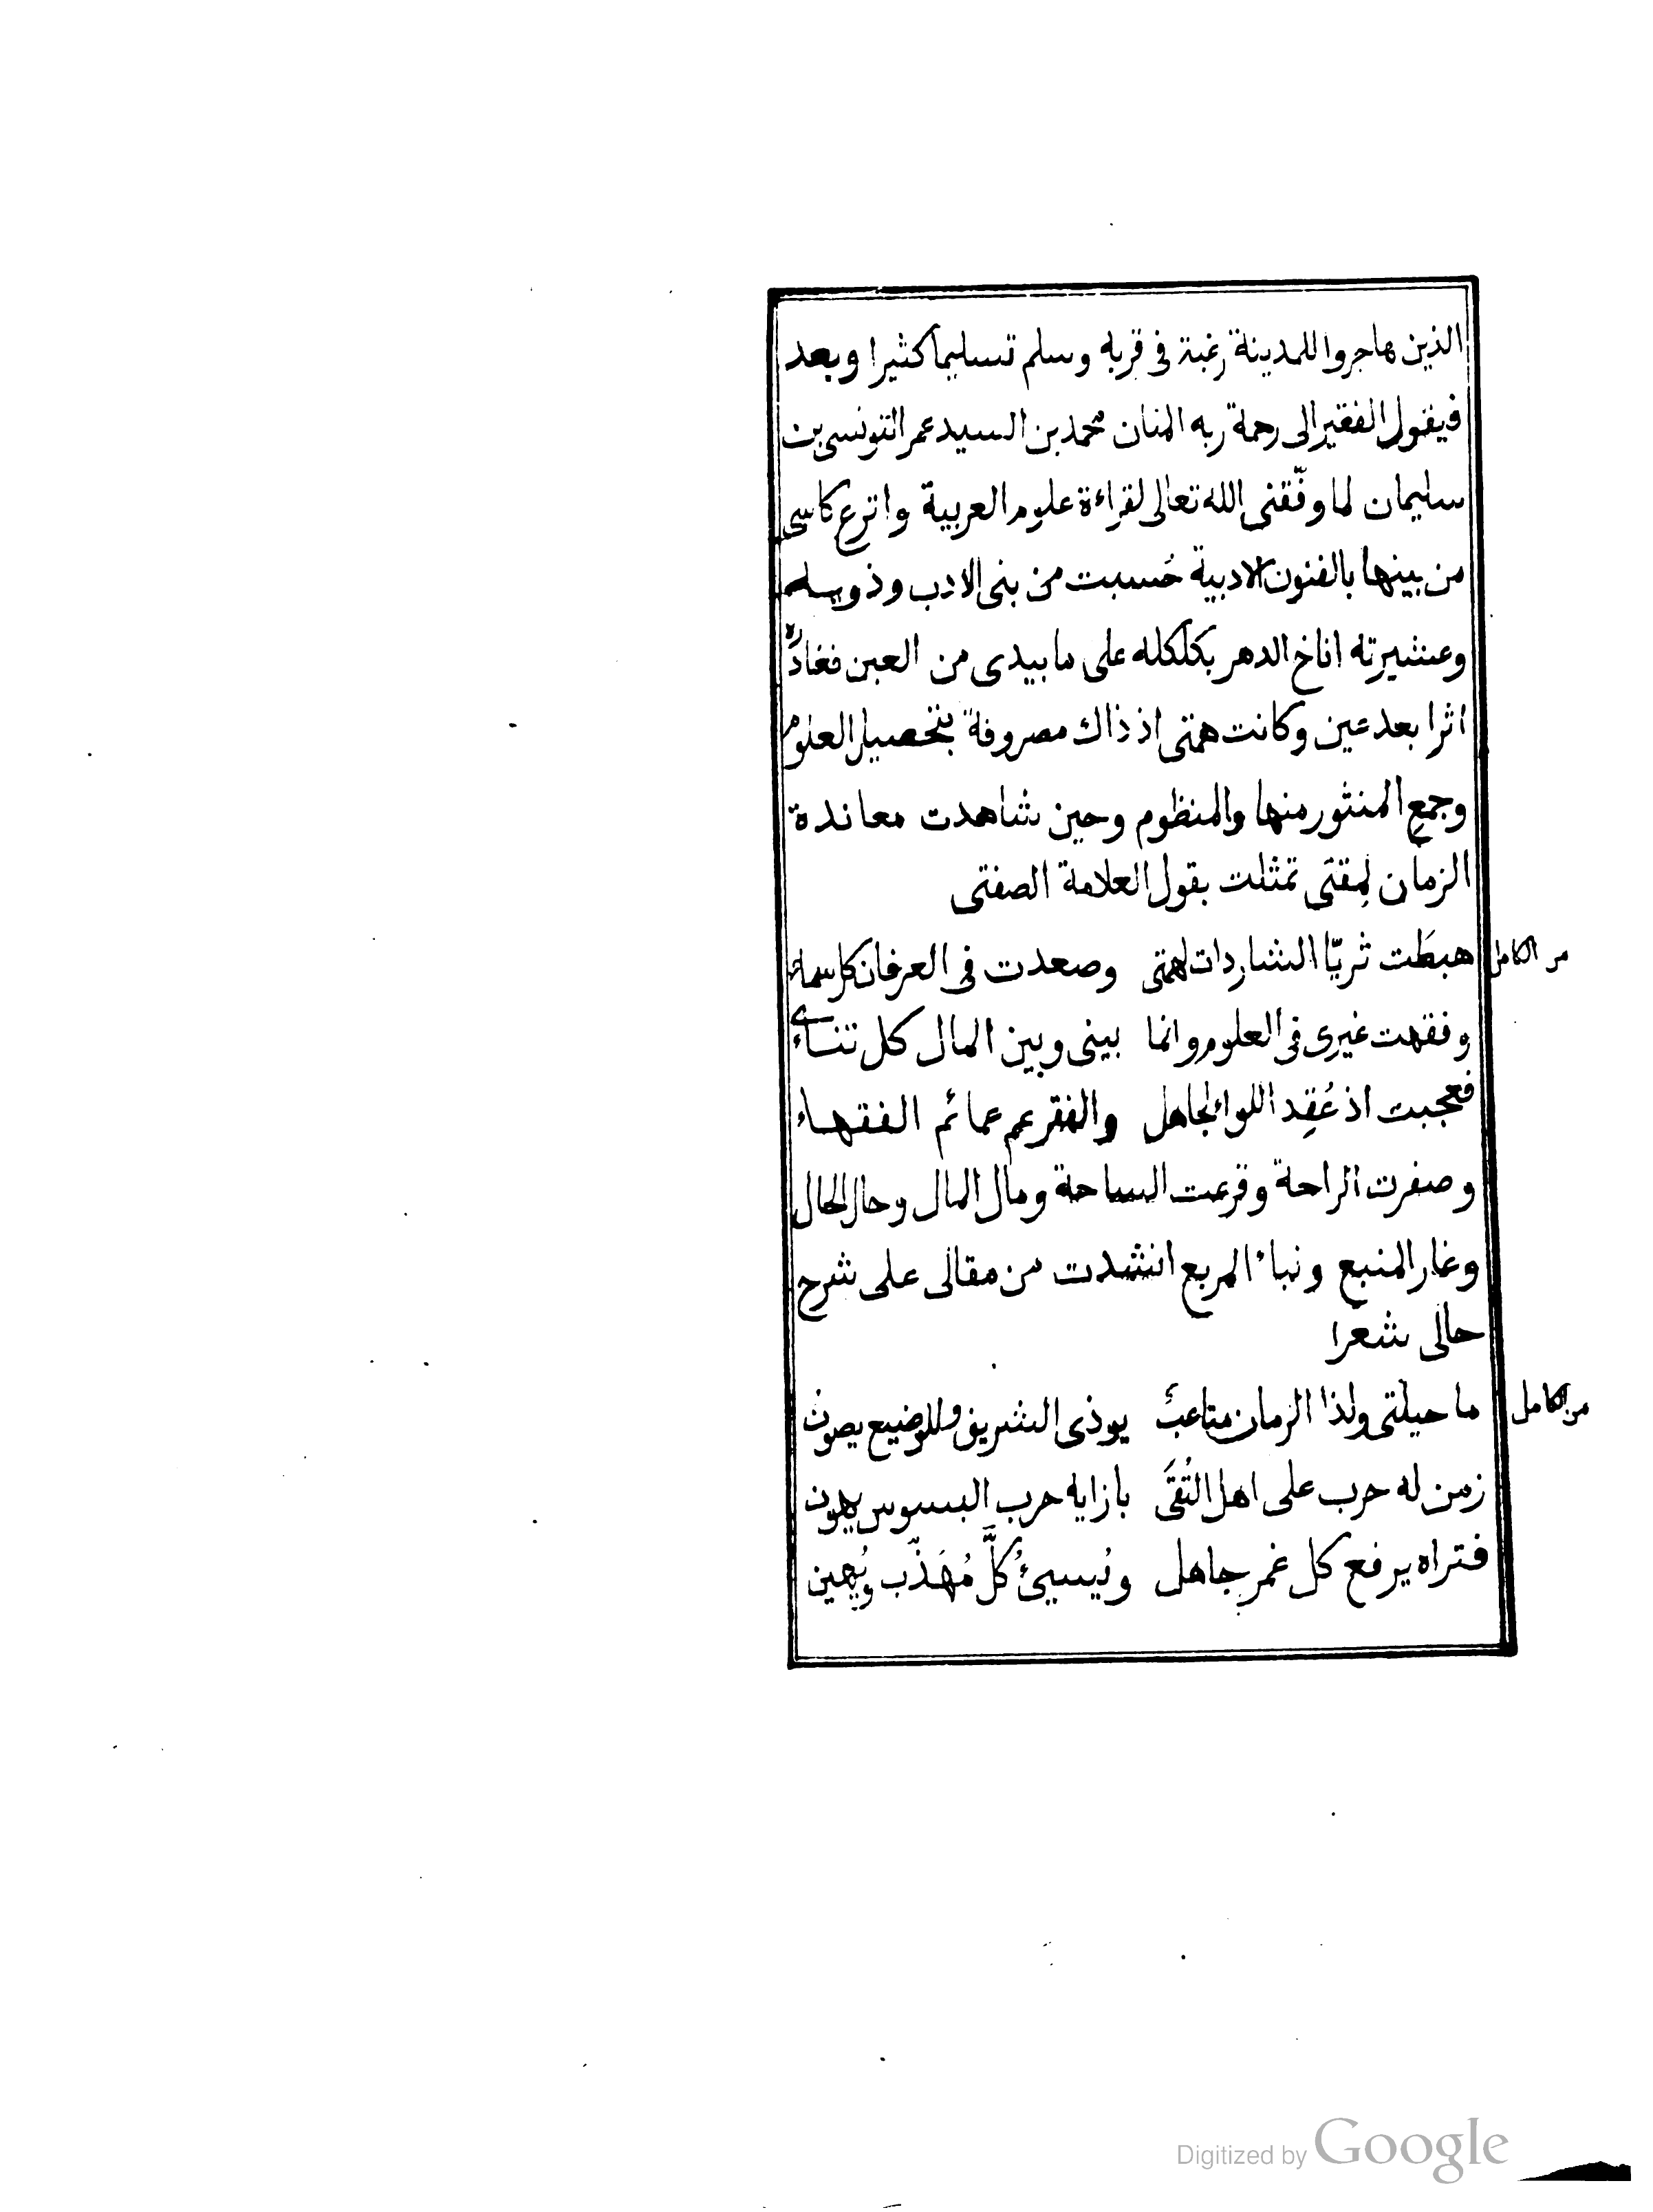 الذين هاجروا للمدينة رغبة فى قربه وسلم تسليما كثيرا وبعد
فيقول الفقير الى رحمة ربه المنان محمد بن السيد عمر التونسى بن
سليمان لما وفّقنى الله تعالى لقراءة علوم العربية واترع كاسى
من بينها بالفنون الادبية حُسبت من بنى الادب وذويه
وعشيرته اناخ الدهر بكلكله على ما بيدى من العين فغادره
اثرا بعد عين وكانت همتى اذ ذاك مصروفة بتحصيل العلوم
وجمع المنثور منها والمنظوم وحين شاهدت معاندة
الزمان لمقتى تمثلت بقول العلامة الصفتى
هبطَت ثريّا الشاردات لهمتى وصعدت فى العرفان كل سماء
من الكامل
وفقهت غيرى فى العلوم وانما بينى وبين المال كل تناءى
فعجبت اذ عُقِد اللواء لجاهل والفقر عم عمائم الفقهاء
وصفرت الراحة وقرعت الساحة ومال المال وحال الحال
وغار المنبع ونبا المربع انشدت من مقالى على شرح
حالى شعرا
ما حيلتى ولذا الزمان متاعبٌ يوذى الشريف وللوضيع يصون
من الكامل
زمن له حرب على اهل التُقَى بازايه حرب البسوس يهون
فتراه يرفع كل غمر جاهل ويُسيئُ كلَّ مُهَذّب ويُهين
Digitized by Google